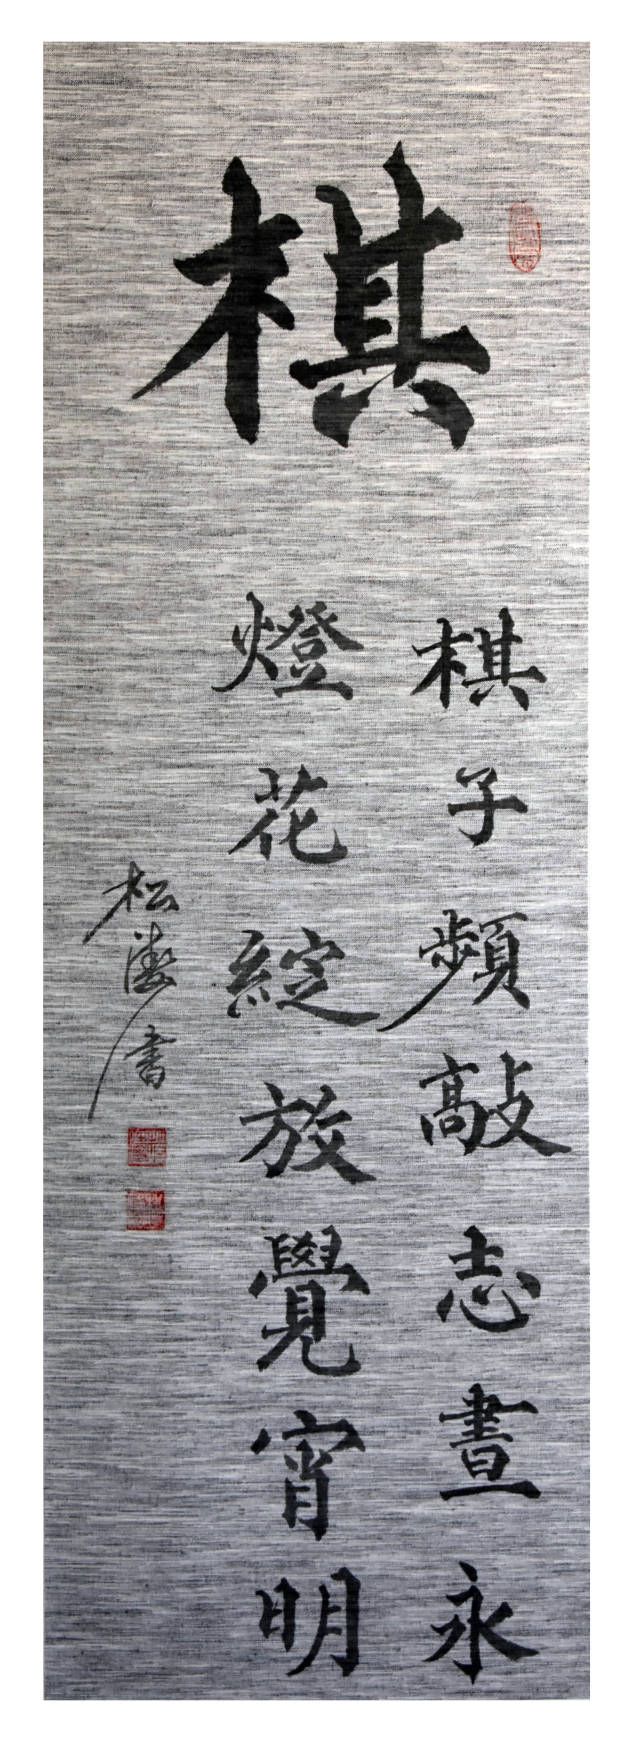 棋
棋子頻敲志晝永
燈花綻放覺宵明
松濤書